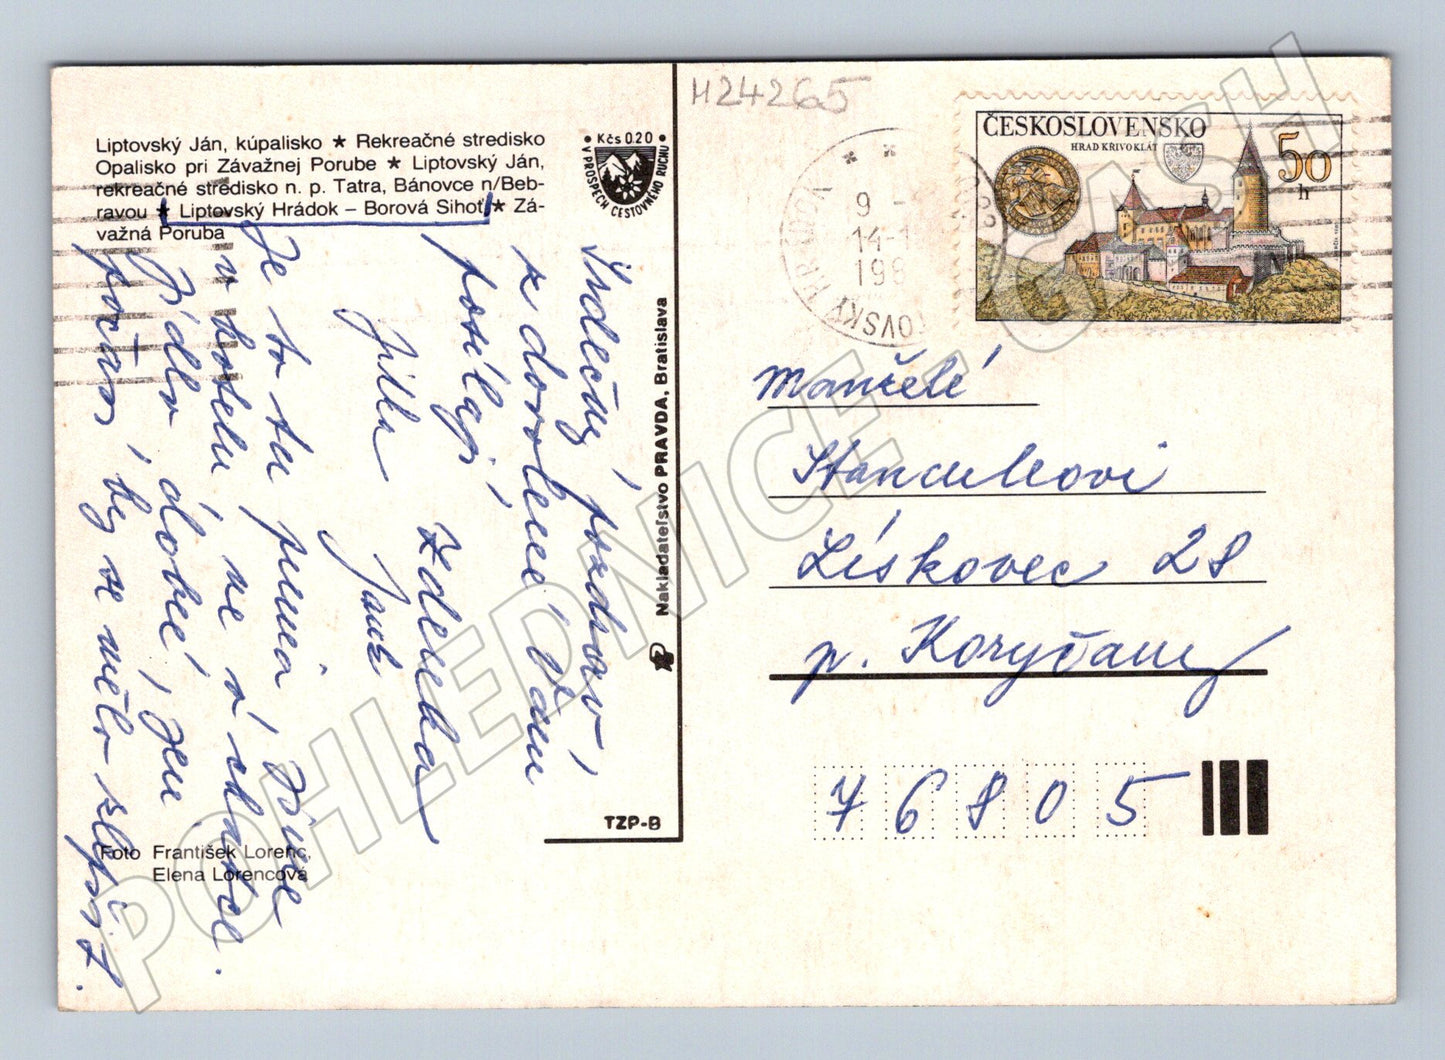 H24265
Liptovský Ján, kúpalisko ★ Rekreačné stredisko
Opalisko pri Závažnej Porube ★ Liptovský Ján,
rekreačné stredisko n. p. Tatra, Bánovce n/Beb-
ravou ★ Liptovský Hrádok – Borová Sihoť ★ Zá-
važná Poruba
Kčs 0.20
V PROSPECH CESTOVNÉHO RUCHU
Srdečný pozdrav
z dovolené Vám
posílají
Zdeňka
Jitka
Janek
Je to tu prima, Bydlíme
v hotelu ne v chatce.
Jídlo dobré, jen
počasí by se mělo zlepšit.
Foto František Lorenc,
Elena Lorencová
Nakladateľstvo PRAVDA, Bratislava
TZP-B
ČESKOSLOVENSKO
HRAD KŘIVOKLÁT
50
h
LIPTOVSKÝ HRÁDOK
9 -
14-1
198
Manželé
Stanculkovi
Lískovec 28
p. Koryčany
76805
POHLEDNICE.CASH